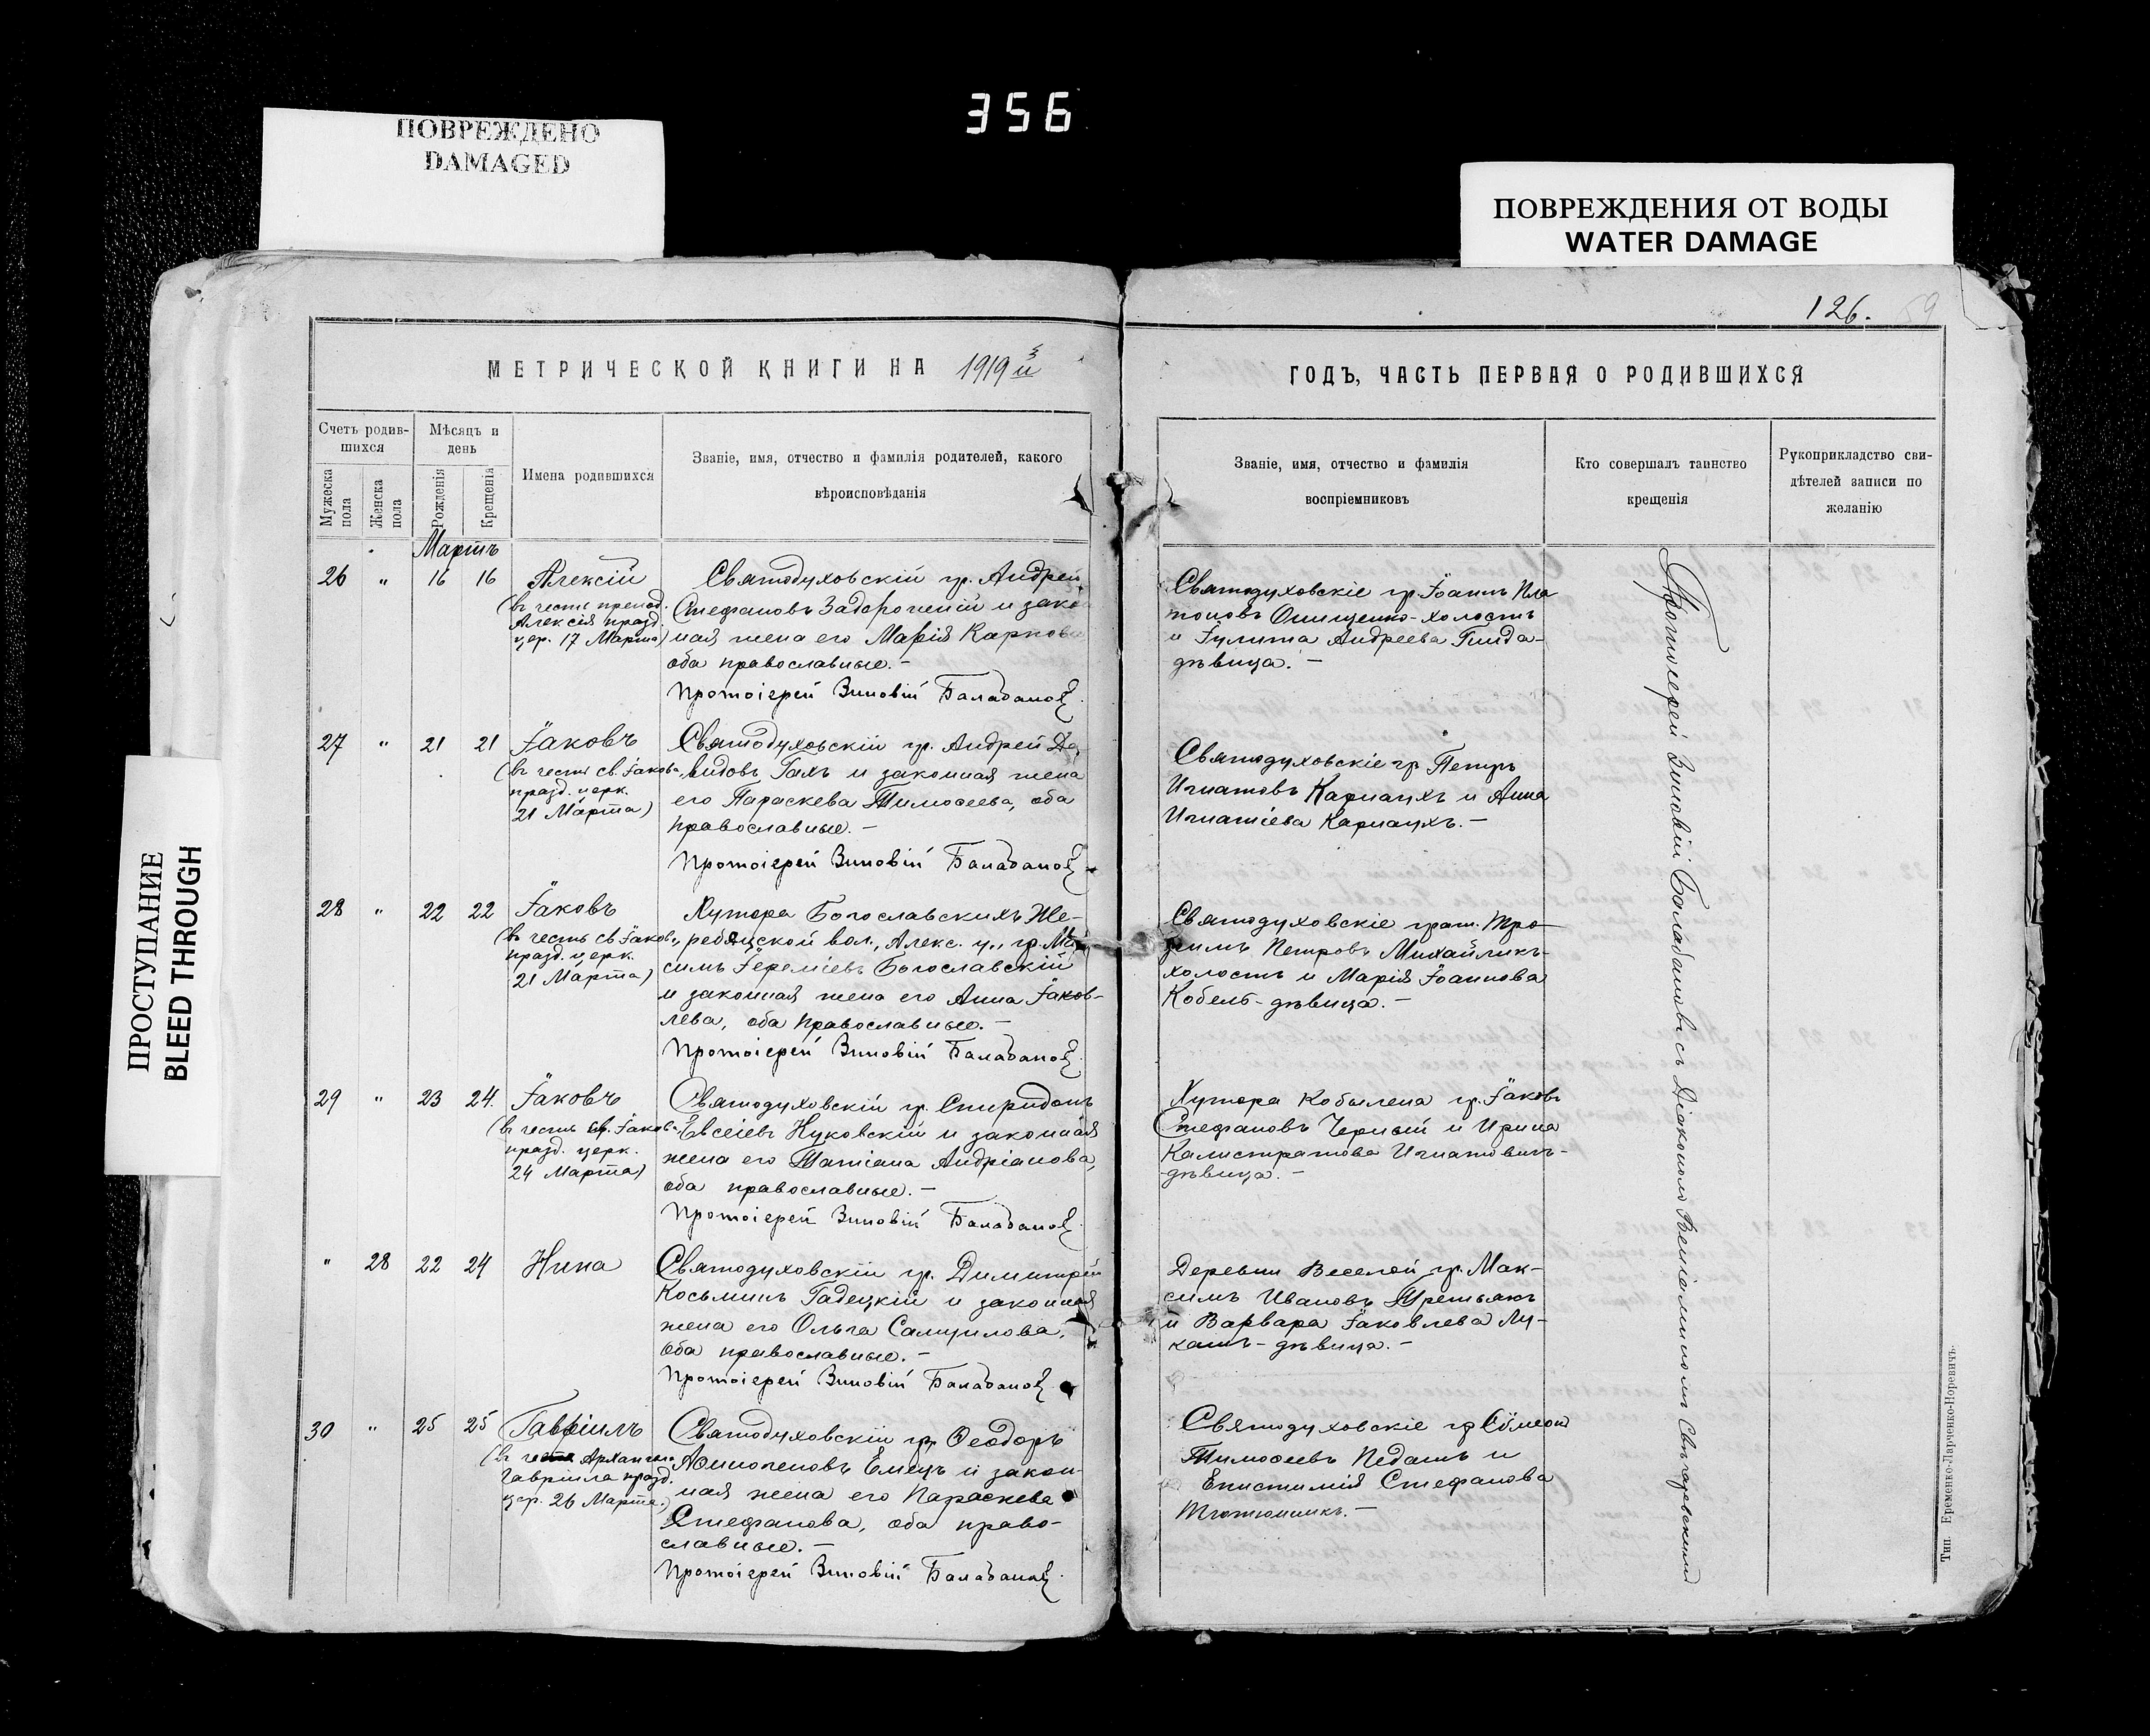 356
ПОВРЕЖДЕНО
DAMAGED
ПОВРЕЖДЕНИЯ ОТ ВОДЫ
WATER DAMAGE
ПРОСТУПАНИЕ
BLEED THROUGH
126.
59
МЕТРИЧЕСКОЙ КНИГИ НА 1919 й
Счетъ родив-
шихся
Мѣсяцъ и
день
Мужеска
пола
Женска
пола
Рожденія
Крещенія
Имена родившихся
Званіе, имя, отчество и фамилія родителей, какого
вѣроисповѣданія
Мартъ
26 " 16 16 Алексій
(въ честь препод.
Алексія празд.
цер. 17 Марта)
Святодуховскій гр. Андрей
Стефановъ Задорожній и закон
ная жена его Марія Карпова
оба православные. –
Протоіерей Зиновій Балабановъ.
27 " 21 21 Іаковъ
(въ честь св. Іакова,
празд. церк.
21 Марта)
Святодуховскій гр. Андрей Да
видовъ Гахъ и законная жена
его Параскева Тимоѳеева, оба
православные. –
Протоіерей Зиновій Балабановъ
28 " 22 22 Іаковъ
(въ честь св. Іакова,
празд. церк.
21 Марта)
Хутора Богославскихъ Же-
ребянской вол., Алекс. у., гр. Мак
симъ Іереміевъ Богославскій
и законная жена его Анна Іаков-
лева, оба православные. –
Протоіерей Зиновій Балабановъ.
29 " 23 24. Іаковъ
(въ честь св. Іакова
празд. церк.
24 Марта)
Святодуховскій гр. Спиридонъ
Евсеіевъ Жуковскій и законная
жена его Татіана Андріанова,
оба православные. –
Протоіерей Зиновій Балабановъ.
" 28 22 24 Нина
Святодуховскій гр. Димитрій
Косьминъ Гадецкій и законная
жена его Ольга Самуилова,
оба православные. –
Протоіерей Зиновій Балабановъ.
30 " 25 25 Гавріилъ
(въ честь Архангела
Гавріила празд.
цер. 26 Марта.)
Святодуховскій гр. Ѳеодоръ
Емецъ и закон-
ная жена его Параскева
Стефанова, оба право-
славные. –
Протоіерей Зиновій Балабановъ.
ГОДЪ, ЧАСТЬ ПЕРВАЯ О РОДИВШИХСЯ
Званіе, имя, отчество и фамилія
воспріемниковъ
Кто совершалъ таинство
крещенія
Рукоприкладство сви-
дѣтелей записи по
желанію
Святодуховскіе гр. Іоаннъ Пла
тоновъ Онищенко - холостъ
и Іулита Андреева Гинда -
дѣвица. –
Святодуховскіе гр Петръ
Игнатовъ Карнаухъ и Анна
Игнатіева Карнаухъ. –
Святодуховскіе граж. Тро
фимъ Петровъ Михайликъ -
холостъ и Марія Іоаннова
Кобель - дѣвица. –
Хутора Кобылена гр. Іаковъ
Стефановъ Черный и Ирина
Калистратова Игнатовичъ -
дѣвица. –
Деревни Веселой гр. Мак-
симъ Ивановъ Третьякъ
и Варвара Іаковлева Лу-
кашъ - дѣвица. –
Святодуховскіе гр Сѵмеон
Тимоѳеевъ Педашъ и
Епистимія Стефанова
Тютюнникъ. –
Протоіерей Зиновій Балабановъ съ Діакономъ
Тип. Еременко-Ларченко-Норевичъ.